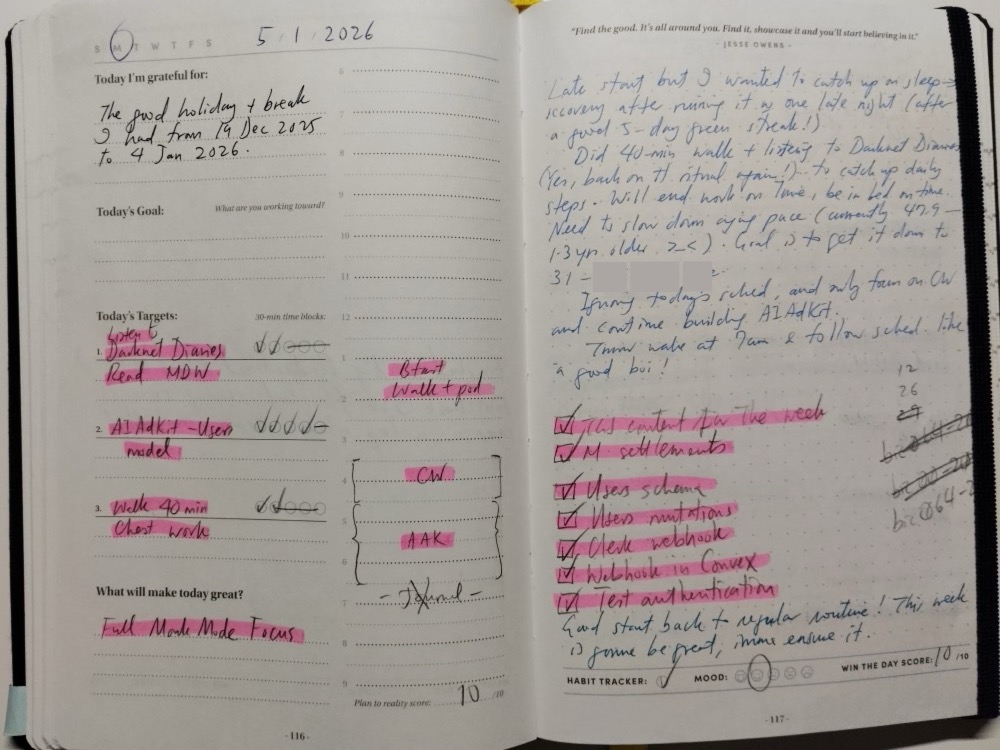 S M T W T F S 5 / 1 / 2026
Today I'm grateful for:
The good holiday + break
I had from 19 Dec 2025
to 4 Jan 2026.
Today's Goal: What are you working toward?
Today's Targets: 30-min time blocks:
Listen to
1. Darknet Diaries
Read MDW
2. AI AdKit - Users
model
3. Walk 40 min
Chest work
What will make today great?
Full Monk Mode Focus
6
7
8
9
10
11
12
1
Bfast
2 Walk + pod
3
4 CW
5
AAK
6
7 - Journal -
8
9
Plan to reality score: 10 /10
- 116 -
"Find the good. It's all around you. Find it, showcase it and you'll start believing in it."
- JESSE OWENS -
Late start but I wanted to catch up on sleep →
recovery after ruining it w one late night (after
a good 5-day green streak!)
Did 40-min walk + listening to Darknet Diaries
(Yes, back on the ritual again!).. to catch up daily
steps. Will end work on time, be in bed on time.
Need to slow down aging pace (currently 42.9 –
1.3 yr older >.<). Goal is to get it down to
31 –
Ignoring today's sched, and only focus on CW
and continue building AI AdKit.
Tmrw wake at 7am & follow sched. like
a good boi!
12
26
29
content for the week
M. settlements
Users schema
Users mutations
Clerk webhook
Webhook in Convex
Test authentication
Good start back to regular routine! This week
is gonna be great, imma ensure it.
HABIT TRACKER: MOOD: WIN THE DAY SCORE: 10 /10
- 117 -